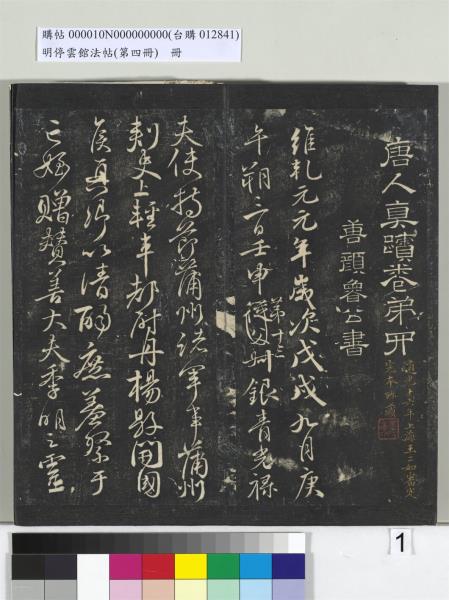 購帖 000010N000000000(台購 012841)
明停雲館法帖(第四冊) 冊
唐人真蹟卷弟四
顏魯公書
維乾元元年歲次戊戌九月庚
午朔三日壬申第十三叔銀青光祿
夫使持節蒲州諸軍事蒲州
刺史上輕車都尉丹楊縣開國
侯真卿以清酌庶羞祭于
亡姪贈贊善大夫季明之靈
1